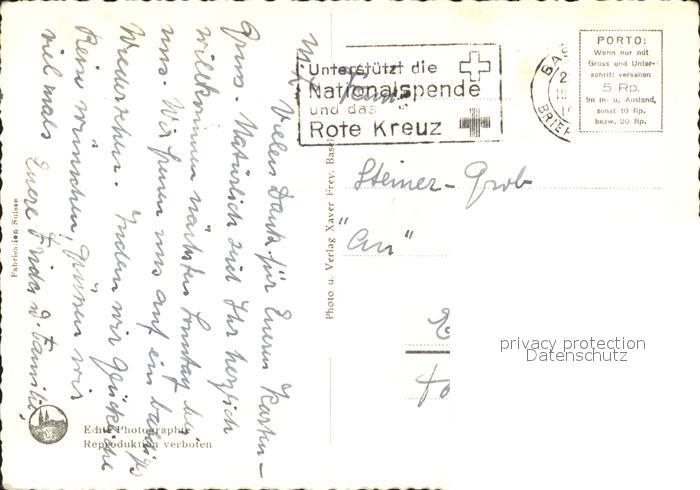 M. L.
Vielen Dank für Euern Karten-
gruss. Natürlich seid Ihr herzlich
willkommen nächsten Sonntag bei
uns. Wir freuen uns auf ein baldiges
Wiedersehen. Indem wir glückliche
Reise wünschen, grüssen wir
viel mals Eure Frida u. Familie
Unterstützt die
Nationalspende
und das
Rote Kreuz
BRIEF
PORTO:
Wenn nur mit
Gruss und Unter-
schrift versehen
5 Rp.
im In- u. Ausland,
sonst 10 Rp.
bezw. 20 Rp.
Fam.
Steiner-Grob
"Au"
privacy protection
Datenschutz
Photo u. Verlag Xaver Frey, Basel
Fabrication Suisse
Echte Photographie
Reproduktion verboten